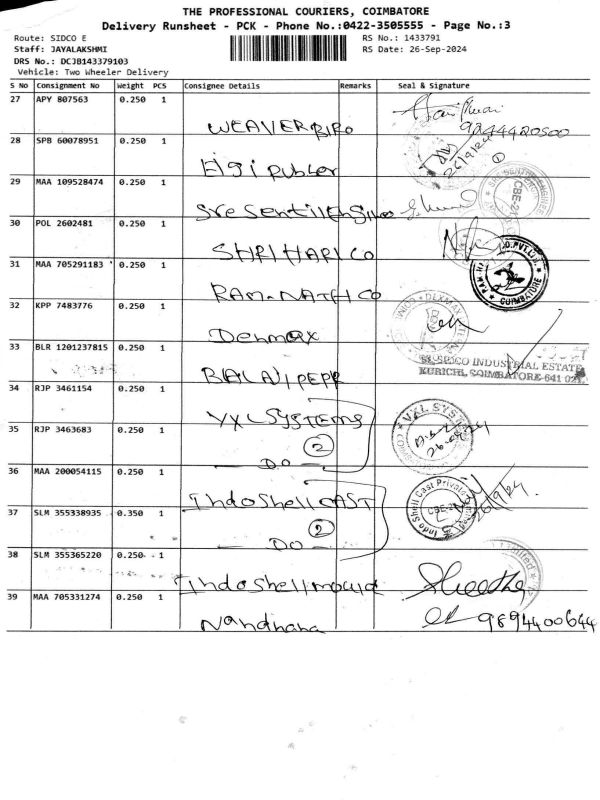 THE PROFESSIONAL COURIERS, COIMBATORE
Delivery Runsheet - PCK - Phone No.:0422-3505555 - Page No.:3
Route: SIDCO E RS No.: 1433791
Staff: JAYALAKSHMI RS Date: 26-Sep-2024
DRS No.: DCJB143379103
Vehicle: Two Wheeler Delivery
S No Consignment No Weight PCS Consignee Details Remarks Seal & Signature
27 APY 807563 0.250 1
WEAVERBIRD 9244420500
28 SPB 60078951 0.250 1
Elgi Rubber 26/9/24
29 MAA 109528474 0.250 1
Sre Senthil
30 POL 2602481 0.250 1
SHRI HARI CO
31 MAA 705291183 0.250 1
RAM-NATH CO COIMBATORE
32 KPP 7483776 0.250 1
Denmax
33 BLR 1201237815 0.250 1
BALAJI PEPR INDUSTRIAL ESTATE
KURICHI, COIMBATORE-641 021
34 RJP 3461154 0.250 1
VXL SYSTEMS
35 RJP 3463683 0.250 1
2
DO
36 MAA 200054115 0.250 1
Indo Shell CAST Indo Shell Cast Private 26/9/24.
37 SLM 355338935 0.350 1
2
DO
38 SLM 355365220 0.250 1
Indo Shell mould
39 MAA 705331274 0.250 1
Nandhana 9894400644